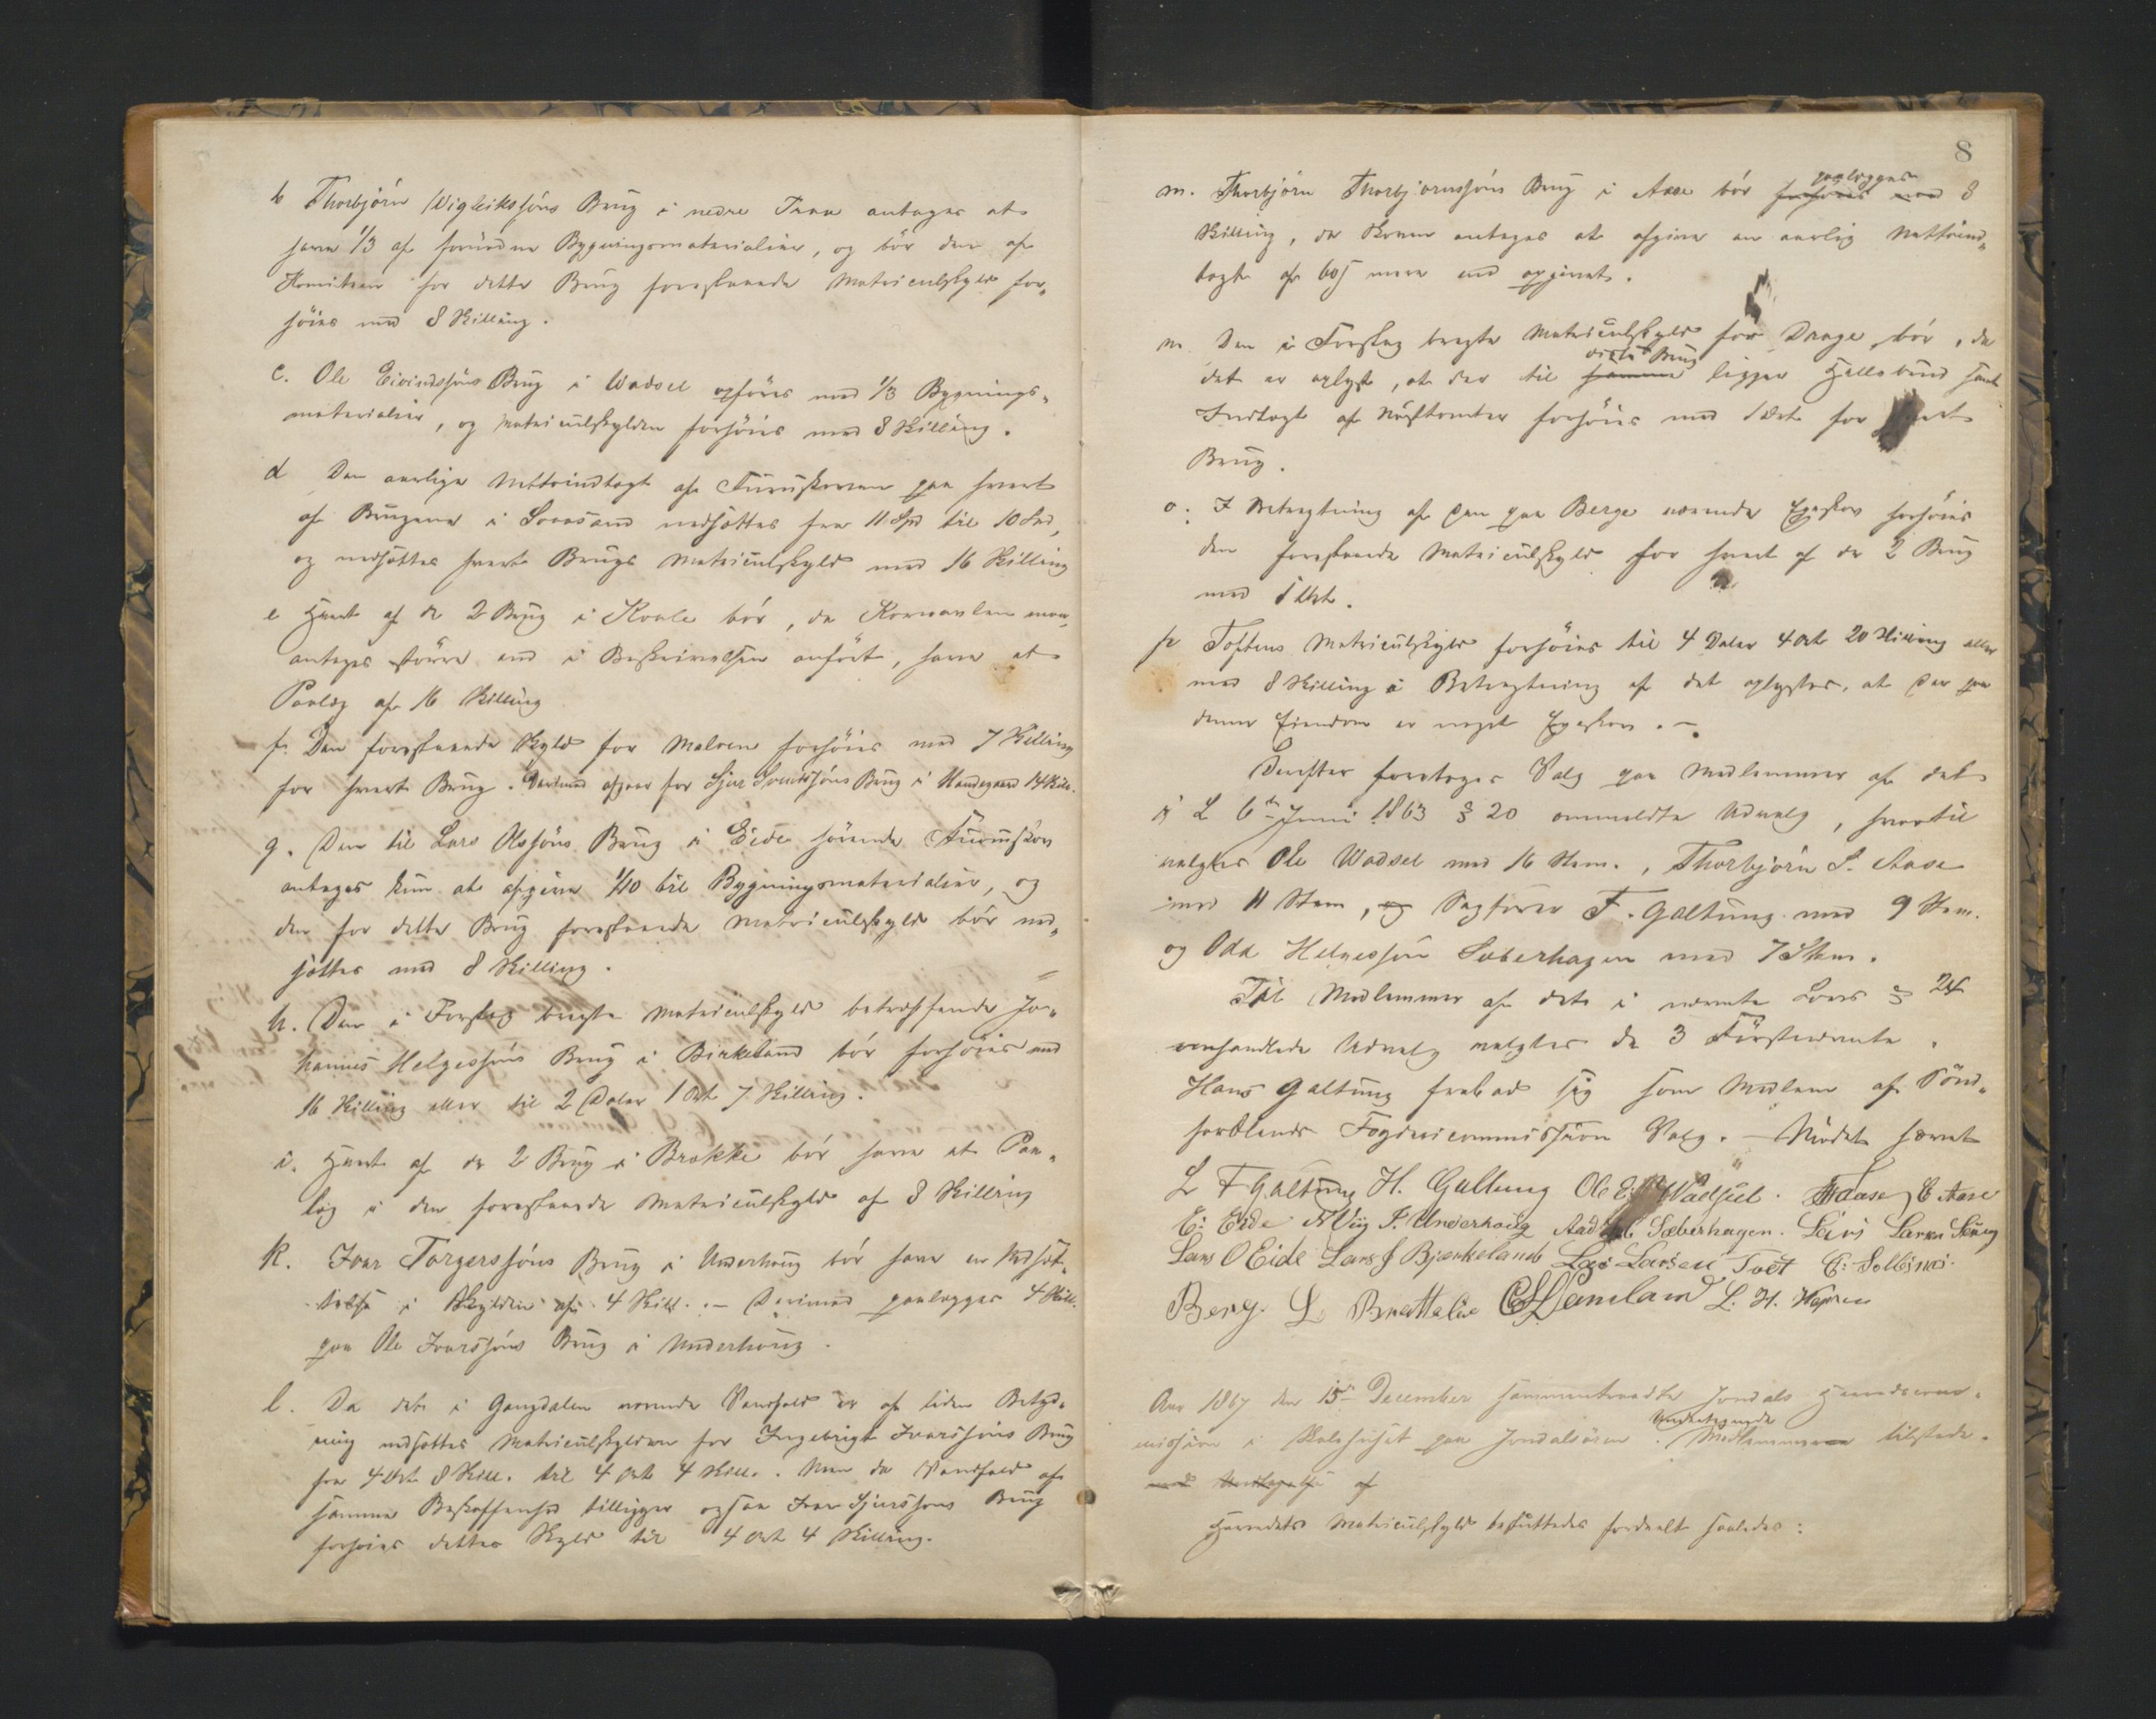 b Thorbjörn Vigleikssöns Brug i nedre Traa antages at
have 1/3 af fornödne Bygningsmaterialier, og bör den af
Komiteen for dette Brug foreslaaede Matriculskyld for„
höies med 8 Skilling.
c. Ole Eivindssöns Brug i Wadsel opföres med 1/3 Bygnings„
materialier, og Matriculskylden forhöies med 8 Skilling.
d Den aarlige Nettoindtægt af Furuskoven paa hvert
af Brugene i Sovesand nedsættes fra 11 Spd til 10 Spd,
og nedsættes hvert Brugs Matriculskyld med 16 Skilling
e Hvert af de 2 Brug i Kvale bör, da Kornavlen maa
antages större end i Beskrivelsen anfört, have et
Paalæg af 16 Skilling
f. Den foreslaaede Skyld for Malven forhöies med 7 Skilling
for hvert Brug. Derimod afgaar for Sjur Sjurssöns Brug i Handegaard 14 Skill.
g. Den til Lars Olssöns Brug i Eide hörende Furuskov
antages kun at afgive 1/10 til Bygningsmaterialier, og
den for dette Brug foreslaaede Matriculskyld bör ned„
sættes med 8 Skilling.
h. Den i Forslag bragte Matriculskyld betræffende Jo„
hannes Helgessöns Brug i Birkeland bör forhöies med
16 Skilling eller til 2 Daler 1 Ort 7 Skilling.
i. Hvert af de 2 Brug i Brække bör have et Paa„
læg i den foreslaaede Matriculskyld af 8 Skilling
k. Ivar Torgerssöns Brug i Underhoug bör have en Nedsæt„
telse i Skylden af 4 Skill. – Derimod paalægges 4 Skill.
paa Ole Ivarssöns Brug i Underhoug.
l. Da det i Gangdalen værende Vandfald er af liden Betyd„
ning nedsættes Matriculskylden for Ingebrigt Ivarssöns Brug
fra 4 Ort 8 Skill. til 4 Ort 4 Skill. Men da Vandfald af
samme Beskaffenhed tilligger ogsaa Ivar Sjurssöns Brug
forhöies dettes Skyld til 4 Ort 4 Skilling.
8
m. Thorbjörn Thorbjörnssöns Brug i Aase bör paalægges 8
Skilling, da Skoven antages at afgive en aarlig Nettoind„
tægt af 60 ß mere end opgivet.
n. Den i Forslag bragte Matriculskyld for Drage, bör, da
det er oplyst, at der til dette Brug ligger Hellebrud samt
Indtægt af Nöstetomter forhöies med 1 Ort for hvert
Brug.
o. I Betragtning af den paa Berge værende Egeskov forhöies
den foreslaaede Matriculskyld for hvert af de 2 Brug
med 1 Ort.
p Toftens Matriculskyld forhöies til 4 Daler 4 Ort 20 Skilling eller
med 8 Skilling i Betragtning af det oplystes, at der paa
denne Eiendom er noget Egeskov. –
Derefter foretoges Valg paa Medlemmer af det
i L 6te Juni 1863 § 20 ommeldte Udvalg, hvortil
valgtes Ole Wadsel med 16 Stem., Thorbjörn S. Aase
med 11 Stem, og Sagförer F. Galtung med 9 Stem.
og Odd Helgessön Sæberhagen med 7 Stem.
Til Medlemmer af det i nævnte Lovs § 24
omhandlede Udvalg valgtes de 3 Förstnævnte.
Hans Galtung frabad sig som Medlem af Sönd„
hordlands Fogdericommission Valg. – Mödet hævet
L F Galtung H. Galtung Ole E. Wadsel. T Aase E Aase
E: Eide I. Underhoug Sæberhagen. Lars Larsen
Lars O Eide Lars J Bjørkeland Lars Larsen Tvet
Berg. L Brattalie L. H.
Aar 1867 den 13de December sammentraadte Jondals Herredscom„
mission i Skolehuset paa Jondalsören. Undertegnede Medlemmer tilstede.
med Undtagelse af
Herredets Matriculskyld besluttedes fordeelt saaledes: